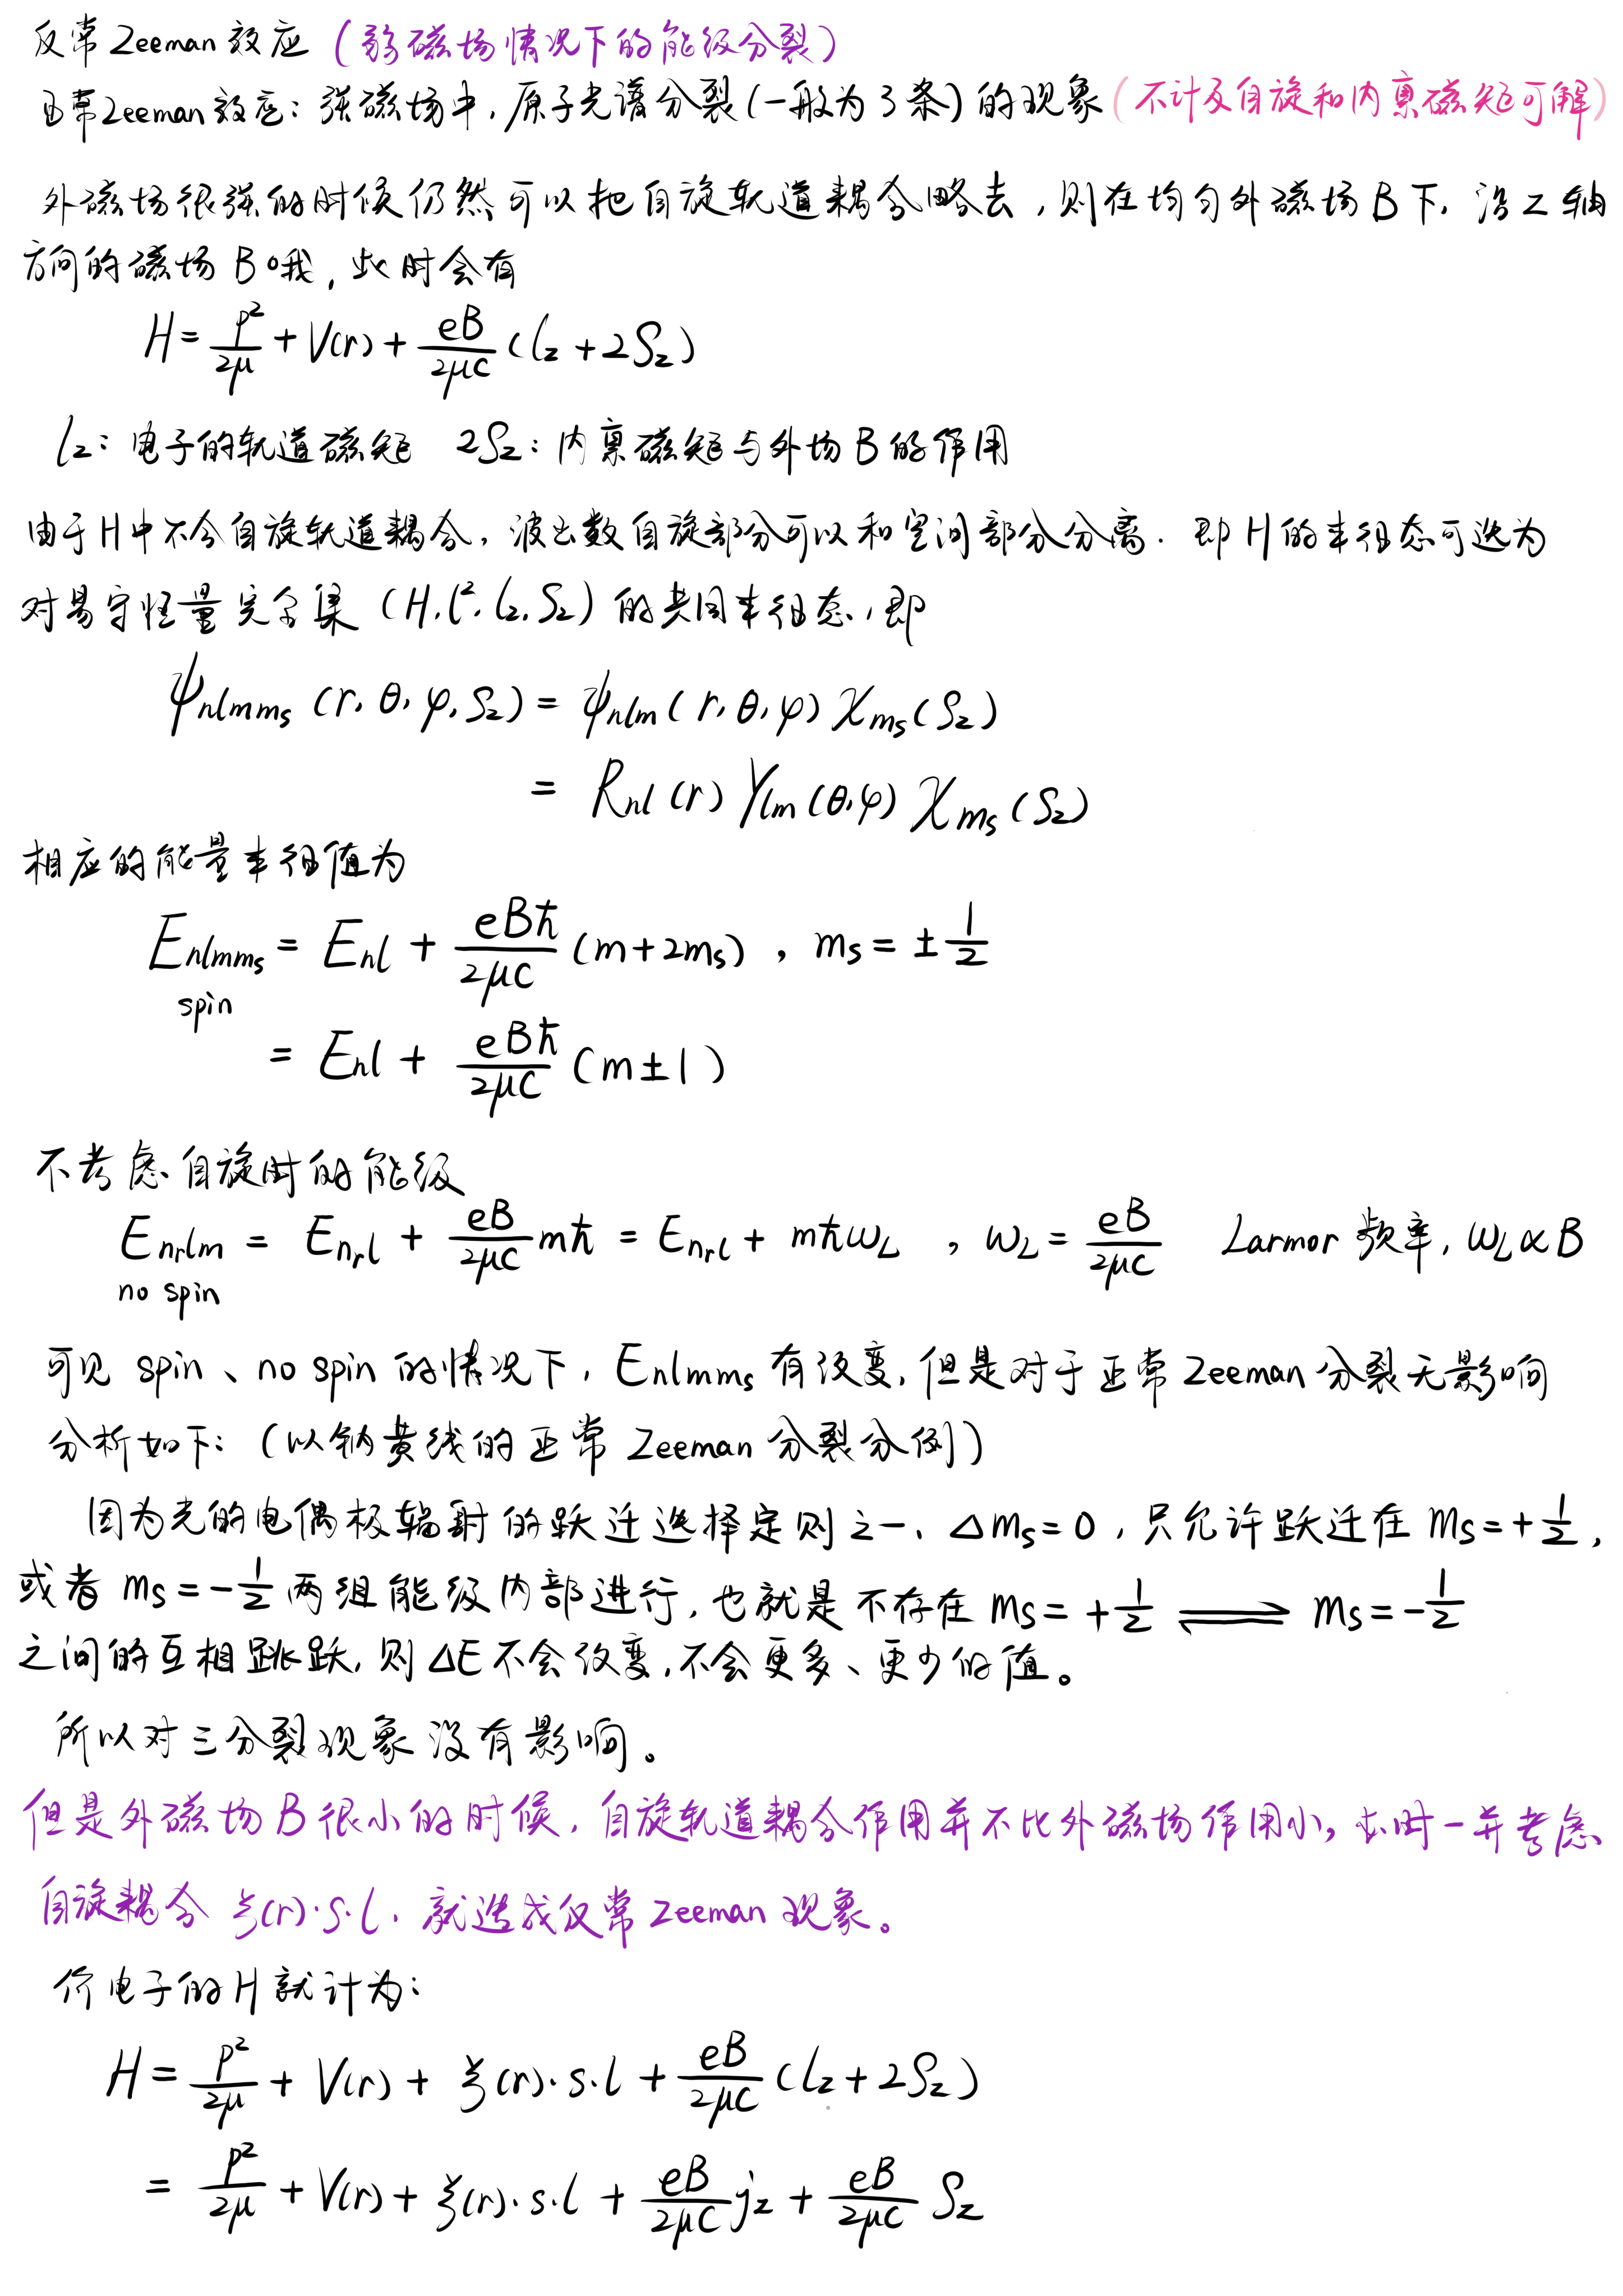 反常 Zeeman 效应 (弱磁场情况下的能级分裂)
正常Zeeman效应: 强磁场中, 原子光谱分裂(一般为3条)的现象(不计及自旋和内禀磁矩可解)
外磁场很强的时候仍然可以把自旋轨道耦合略去, 则在均匀外磁场B下, 沿Z轴
方向的磁场B哦, 此时会有
H = p²/2μ + V(r) + eB/2μc (l_z + 2S_z)
l_z: 电子的轨道磁矩 2S_z: 内禀磁矩与外场B的作用
由于H中不含自旋轨道耦合, 波函数自旋部分可以和空间部分分离. 即H的本征态可选为
对易守恒量完全集 (H, l², l_z, S_z) 的共同本征态, 即
ψ_nlmm_s (r, θ, φ, S_z) = ψ_nlm (r, θ, φ) χ_m_s (S_z)
= R_nl (r) Y_lm (θ, φ) χ_m_s (S_z)
相应的能量本征值为
E_nlmm_s = E_nl + eBħ/2μc (m + 2m_s) , m_s = ± 1/2
spin
= E_nl + eBħ/2μc (m ± 1)
不考虑自旋时的能级
E_n_rlm = E_n_rl + eB/2μc mħ = E_n_rl + mħω_L , ω_L = eB/2μc Larmor 频率, ω_L ∝ B
no spin
可见 spin、no spin 的情况下, E_nlmm_s 有改变, 但是对于正常 Zeeman 分裂无影响
分析如下: (以钠黄线的正常 Zeeman 分裂分例)
因为光的电偶极辐射的跃迁选择定则之一、Δm_s = 0, 只允许跃迁在 m_s = + 1/2,
或者 m_s = - 1/2 两组能级内部进行, 也就是不存在 m_s = + 1/2 ⇌ m_s = - 1/2
之间的互相跳跃, 则 ΔE 不会改变, 不会更多、更少的值。
所以对三分裂现象没有影响。
但是外磁场B很小的时候, 自旋轨道耦合作用并不比外磁场作用小, 此时一并考虑
自旋耦合 ξ(r)·s·l, 就造成反常 Zeeman 现象。
价电子的H就计为:
H = p²/2μ + V(r) + ξ(r)·s·l + eB/2μc (l_z + 2S_z)
= p²/2μ + V(r) + ξ(r)·s·l + eB/2μc j_z + eB/2μc S_z